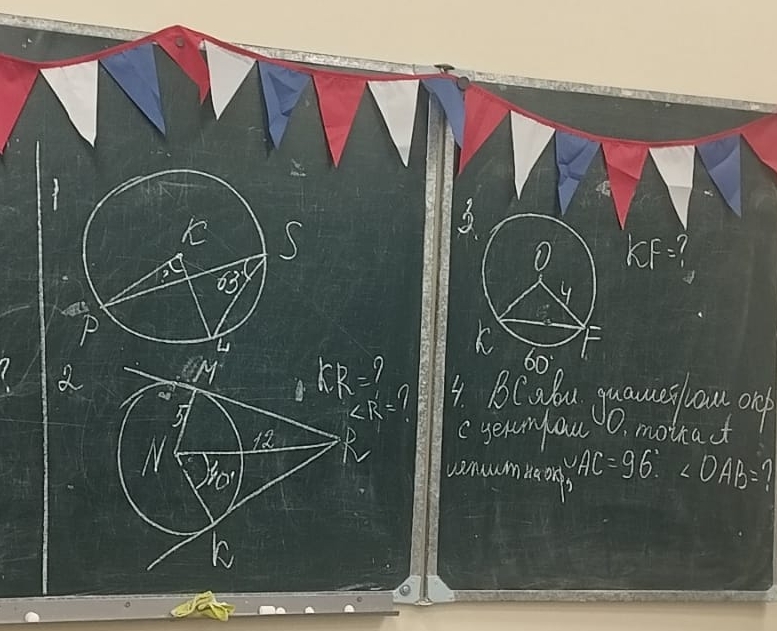 1
K
?
S
63°
P
4
?
2
M
KR = ?
∠R = ?
5
N
12
R
40°
K
3.
KF = ?
O
4
K
F
60°
4. ВС явл. диаметром окр
с центром О, точка А
лежит на окр, ◡AC = 96° ∠OAB = ?